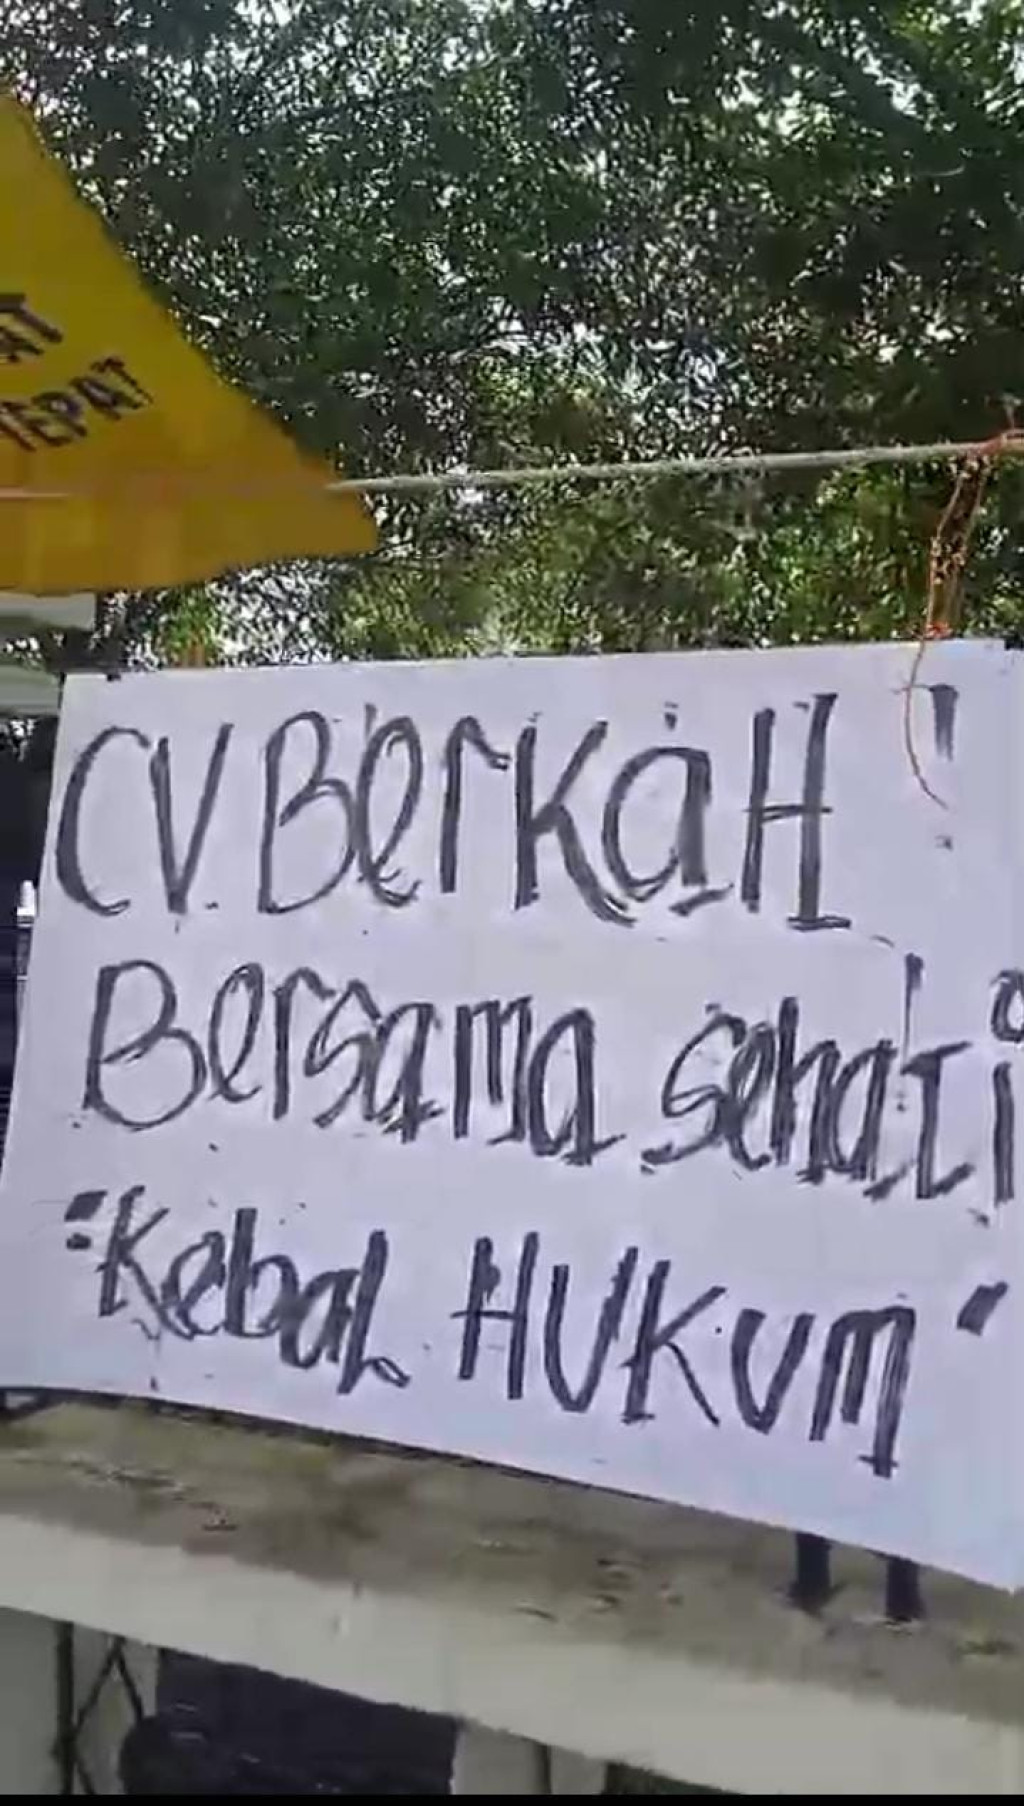 AT
TEPAT
CV BerKaH !
Bersama sehaTi
"Kebal HUKUM"